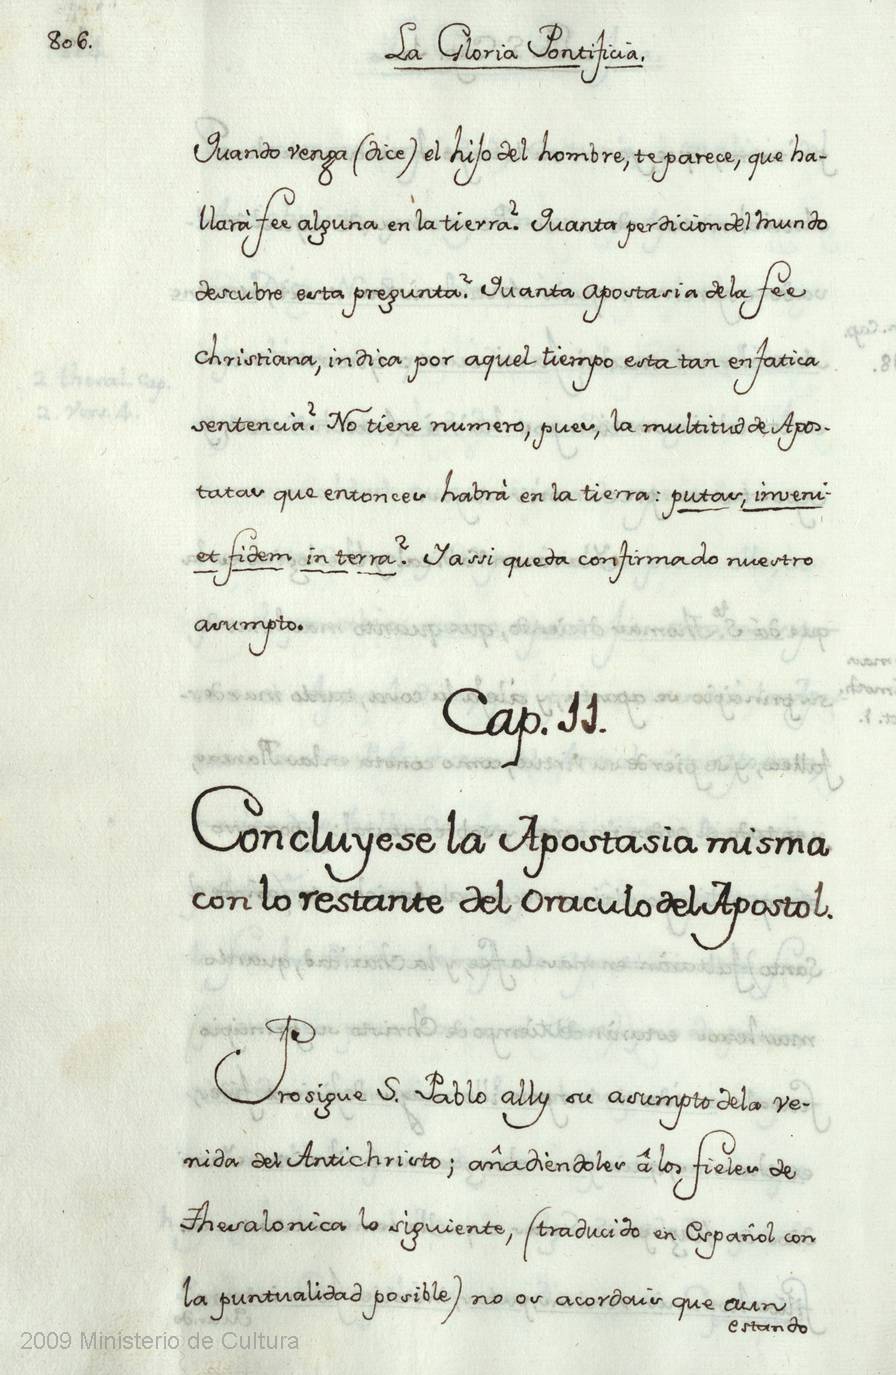 806.
La Gloria Pontificia.
Quando venga (dice) el hijo del hombre, te parece, que ha-
llarà fee alguna en la tierra? Quanta perdicion del mundo
descubre esta pregunta? Quanta apostasia de la fee
Christiana, indica por aquel tiempo esta tan enfatica
sentencia? No tiene numero, pues, la multitud de Apos-
tatas que entonces habrà en la tierra: putas, inveni-
et fidem in terra? Y assi queda confirmado nuestro
asumpto.
Cap. 11.
Concluyese la Apostasia misma
con lo restante del Oraculo del Apostol.
Prosigue S. Pablo ally su asumpto dela ve-
nida del Antichristo; añadiendoles â los fieles de
Thesalonica lo siguiente, (traducido en Español con
la puntualidad posible) no os acordais que aun
estando
2 thesal. Cap.
2. vers. 4.
2009 Ministerio de Cultura